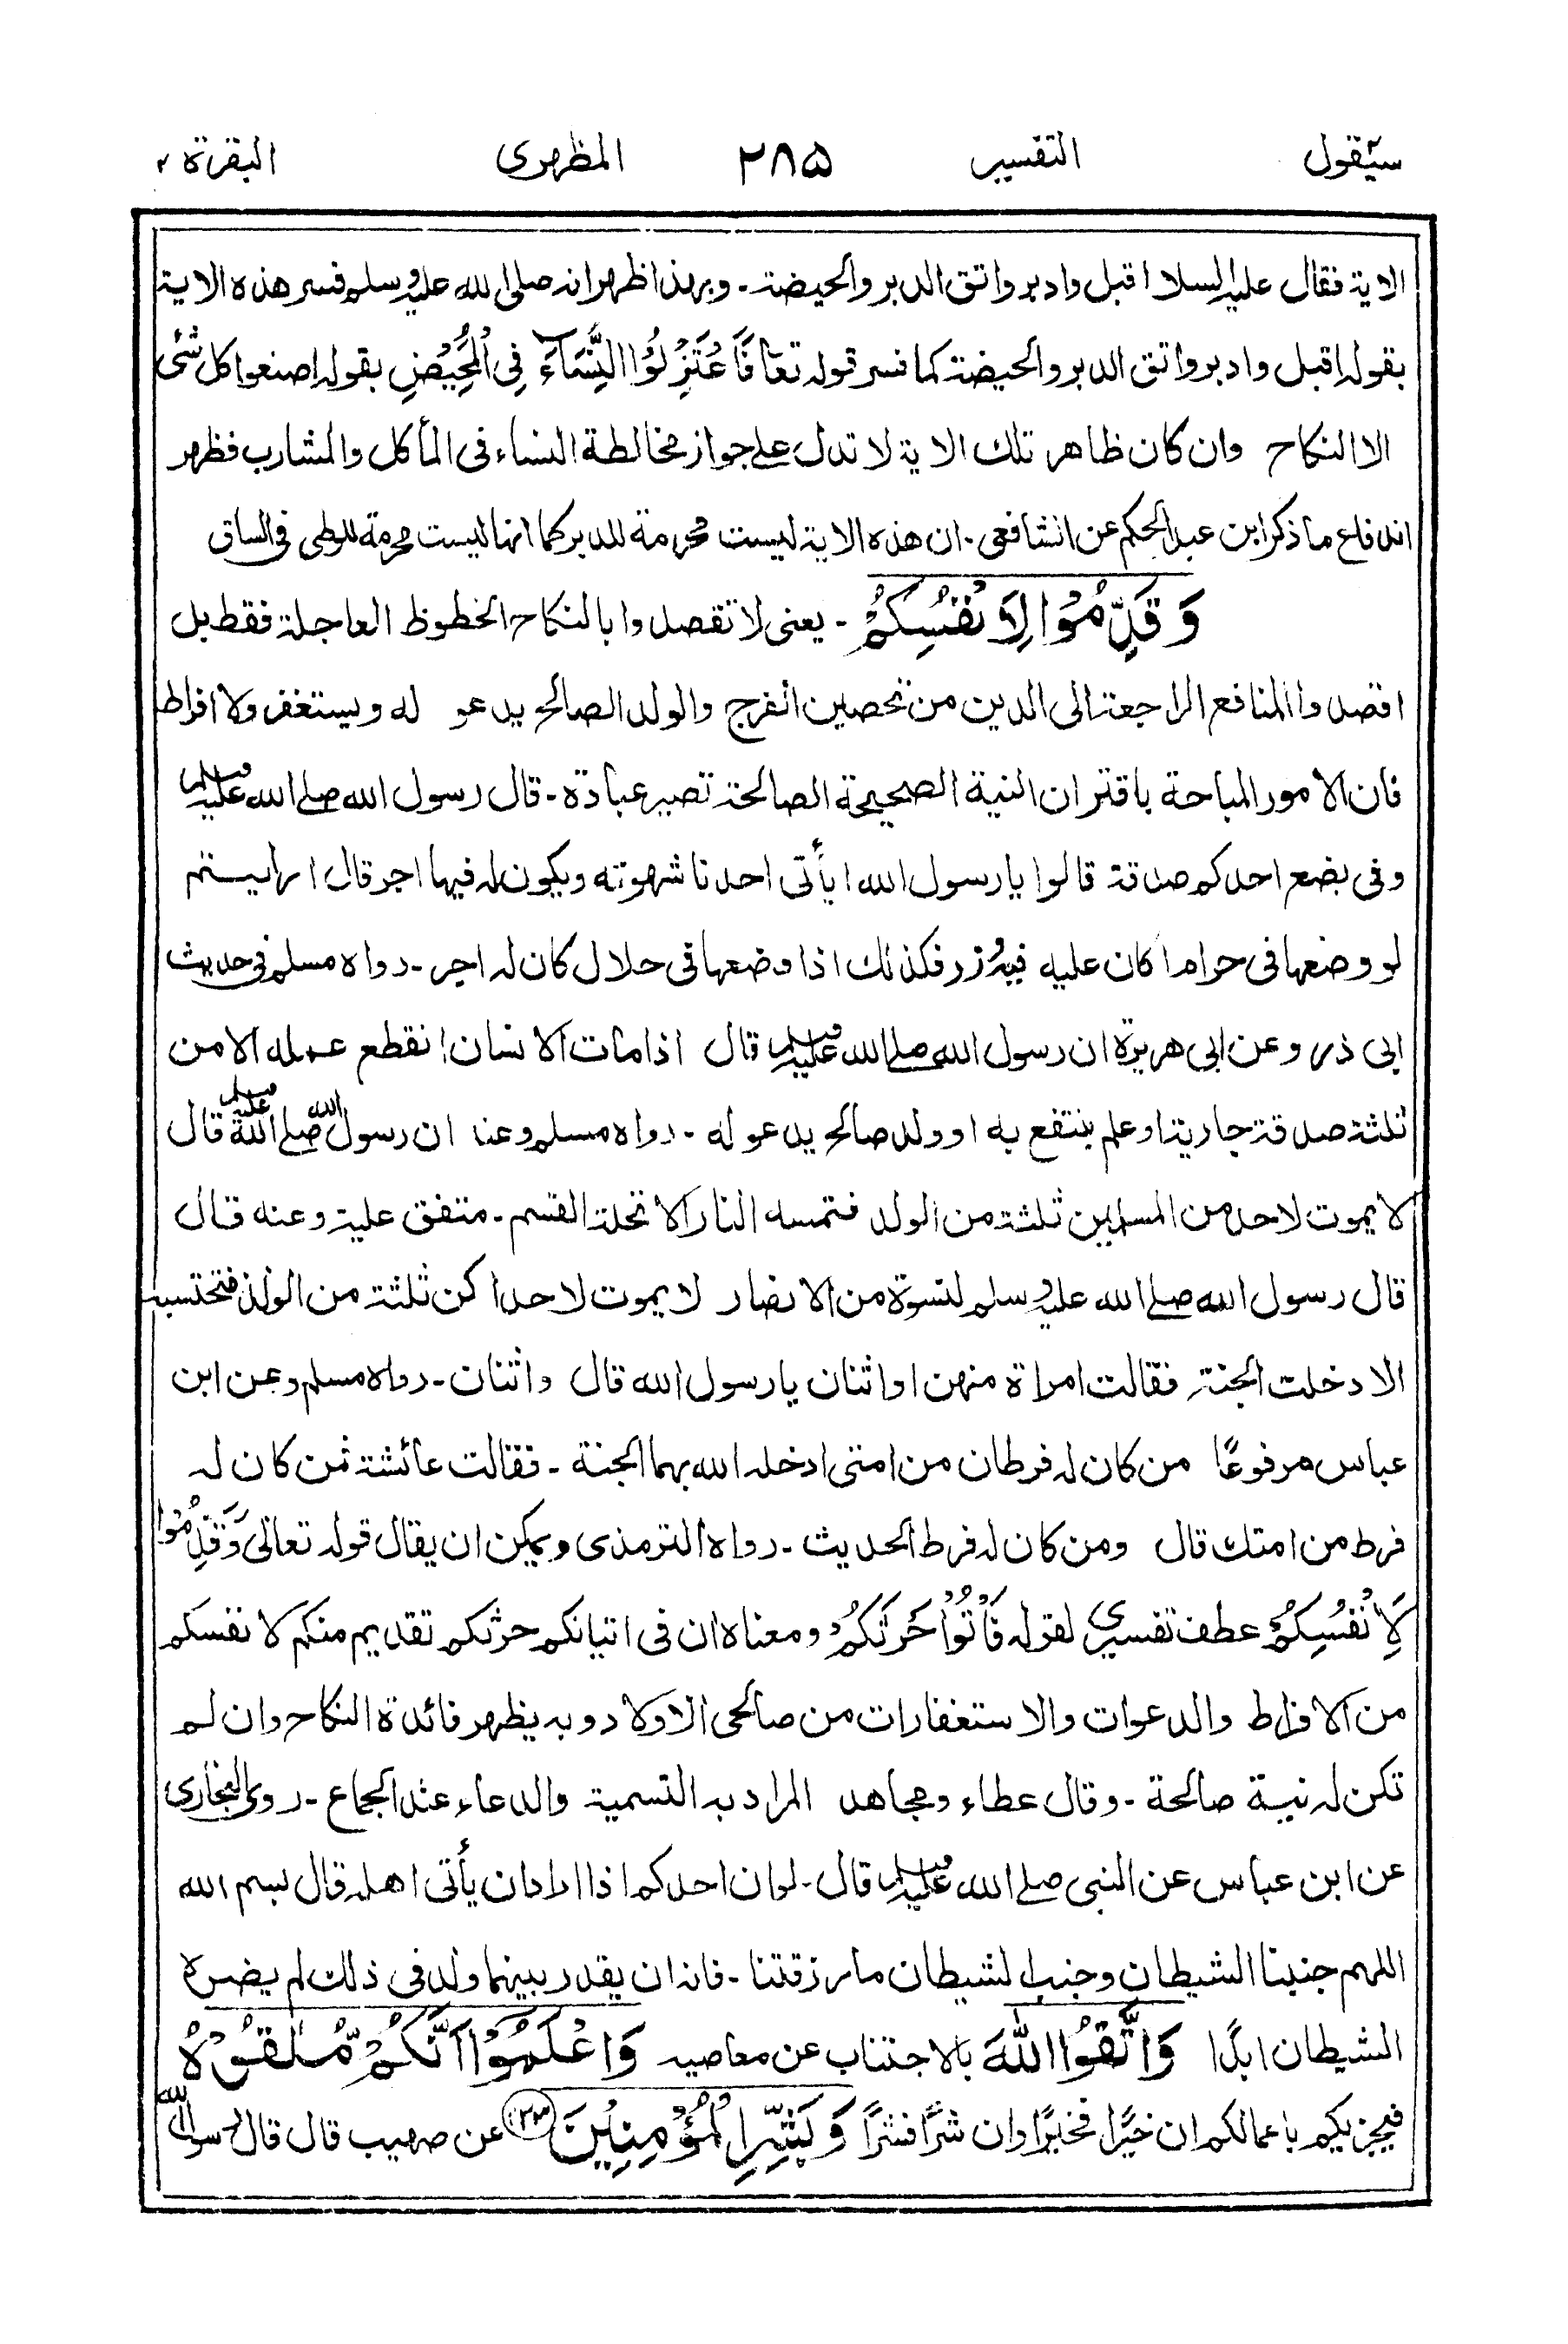 سيقول ٢ التفسير ٢٨٥ المظهرى البقرة ٢
الاية فقال عليه السلام اقبل وادبر واتق الدبر والحيضة - وبهذا ظهر انه صلى الله عليه وسلم فسر هذه الاية
بقوله اقبل وادبر واتق الدبر والحيضة كما فسر قوله تعالى فَاعْتَزِلُوا النِّسَاءَ فِي الْمَحِيْضِ بقوله اصنعوا كل شئ
الا النكاح وان كان ظاهر تلك الاية لا تدل على جواز مخالطة النساء فى المأكل والمشارب فظهر
اندفاع ما ذكر ابن عبد الحكم عن الشافعى - ان هذه الاية ليست محرمة للدبر كما انها ليست محرمة للوطى فى الساق
وَقَدِّمُوْا لِاَنْفُسِكُمْ - يعنى لا تقصدوا بالنكاح الحظوظ العاجلة فقط بل
اقصدوا المنافع الراجعة الى الدين من تحصين الفرج والولد الصالح يدعو له ويستغفر والافراط
فان الامور المباحة باقتران النية الصحيحة الصالحة تصير عبادة - قال رسول الله صلى الله عليه وسلم
وفى بضع احدكم صدقة قالوا يا رسول الله ايأتى احدنا شهوته ويكون له فيها اجر قال ارايستم
لو وضعها فى حرام اكان عليه فيه وزر فكذلك اذا وضعها فى حلال كان له اجر - رواه مسلم فى حديث
ابى ذر وعن ابى هريرة ان رسول الله صلى الله عليه وسلم قال اذا مات الانسان انقطع عمله الا من
ثلثة صدقة جارية او علم ينتفع به او ولد صالح يدعو له - رواه مسلم وعنه ان رسول الله صلى الله عليه وسلم قال
لا يموت لاحد من المسلمين ثلثة من الولد فتمسه النار الا تحلة القسم - متفق عليه وعنه قال
قال رسول الله صلى الله عليه وسلم لنسوة من الانصار لا يموت لاحداكن ثلثة من الولد فتحتسبه
الا دخلت الجنة فقالت امراة منهن او اثنان يا رسول الله قال واثنان - رواه مسلم وعن ابن
عباس مرفوعًا من كان له فرطان من امتى ادخله الله بهما الجنة - فقالت عائشة فمن كان له
فرط من امتك قال ومن كان له فرط الحديث - رواه الترمذى ويمكن ان يقال قوله تعالى وَقَدِّمُوْا
لِاَنْفُسِكُمْ عطف تفسيرى لقوله فَأْتُوْا حَرْثَكُمْ ومعناه ان فى اتيانكم حرثكم تقديم منكم لانفسكم
من الافراط والدعوات والاستغفارات من صالحى الاولاد وبه يظهر فائدة النكاح وان لم
تكن له نية صالحة - وقال عطاء ومجاهد المراد به التسمية والدعاء عند الجماع - روى البخارى
عن ابن عباس عن النبى صلى الله عليه وسلم قال - لو ان احدكم اذا اراد ان يأتى اهله قال بسم الله
اللهم جنبنا الشيطان وجنب الشيطان ما رزقتنا - فانه ان يقدر بينهما ولد فى ذلك لم يضره
الشيطان ابدًا وَاتَّقُوا اللهَ بالاجتناب عن معاصيه وَاعْلَمُوْا اَنَّكُمْ مُّلٰقُوْهُ
فيجزيكم باعمالكم ان خيرًا فخيرًا وان شرًّا فشرًّا وَبَشِّرِ الْمُؤْمِنِيْنَ ٢٢٣ عن صهيب قال قال رسول الله